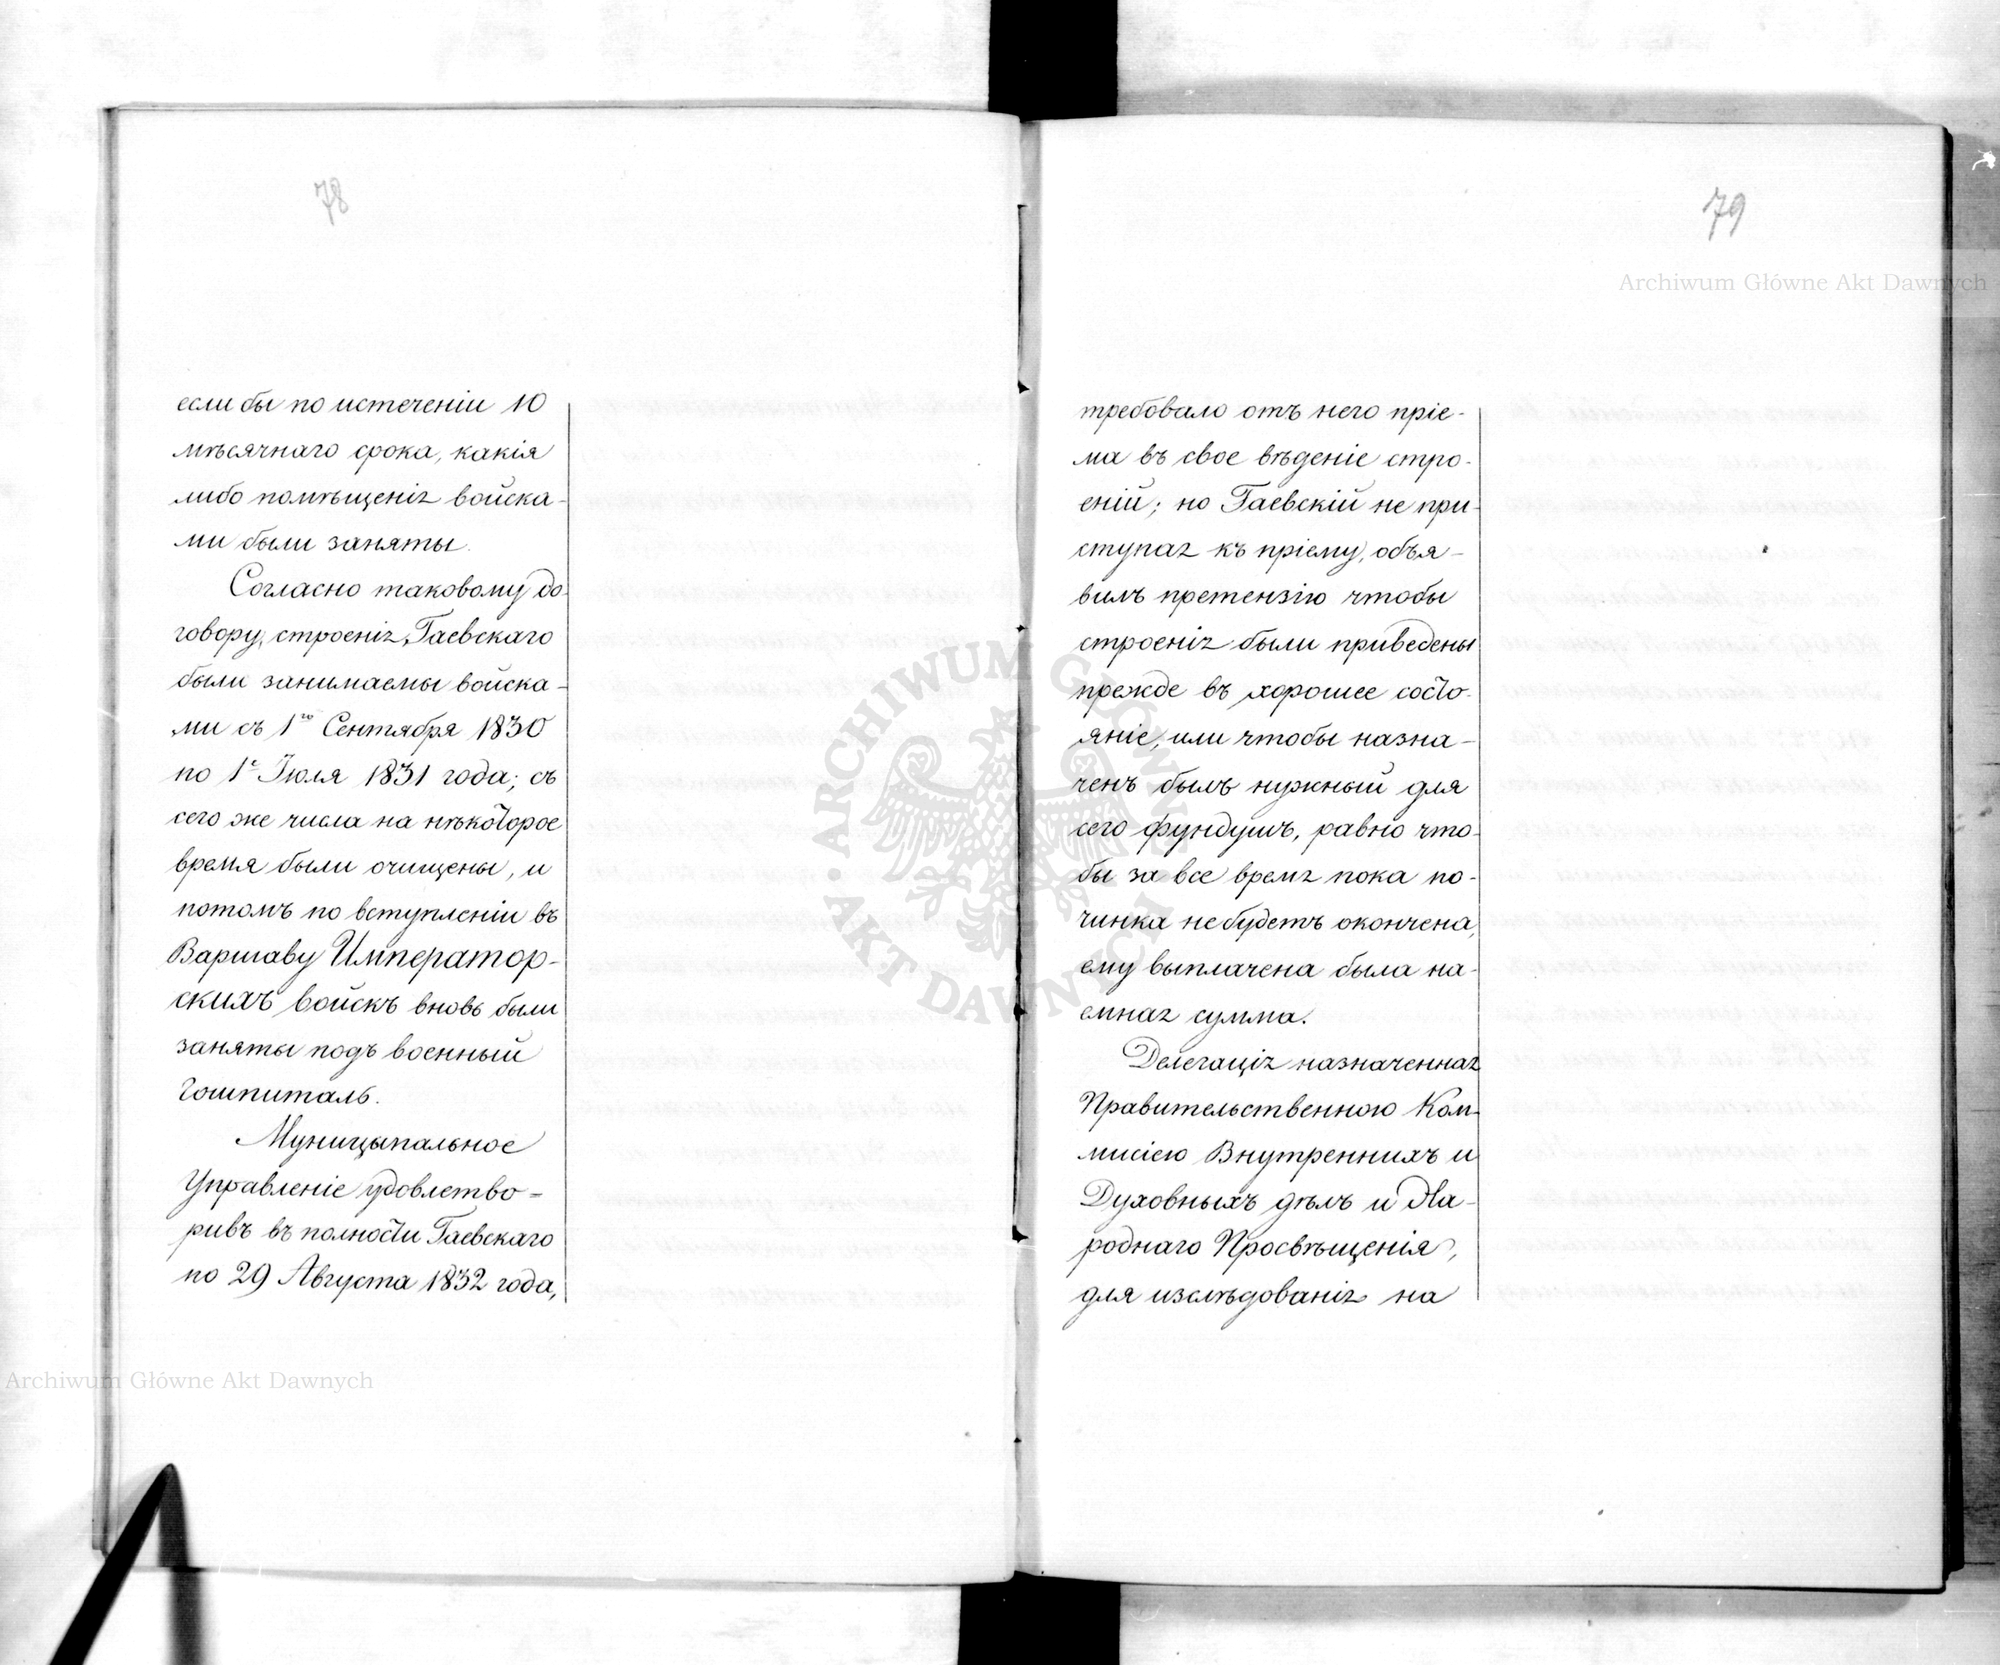 78
если бы по истеченіи 10
мѣсячнаго срока, какія
либо помѣщенія войска-
ми были заняты.
Согласно таковому до-
говору, строенія Гаевскаго
были занимаемы войска-
ми съ 1го Сентября 1830
по 1е Іюля 1831 года; съ
сего же числа на нѣкоторое
время были очищены, и
потомъ по вступленіи въ
Варшаву Император-
скихъ войскъ вновь были
заняты подъ военный
гошпиталь.
Муницыпальное
Управленіе удовлетво-
ривъ въ полности Гаевскаго
по 29 Августа 1832 года,
79
требовало отъ него пріе-
ма въ свое вѣденіе стро-
еній; но Гаевскій не при-
ступая къ пріему, объя-
вилъ претензію чтобы
строенія были приведены
прежде въ хорошее состо-
яніе, или чтобы назна-
ченъ былъ нужный для
сего фундушъ, равно что-
бы за все время пока по-
чинка не будетъ окончена,
ему выплачена была на-
емная сумма.
Делегація назначенная
Правительственною Ком-
мисіею Внутреннихъ и
Духовныхъ дѣлъ и На-
роднаго Просвѣщенія,
для изслѣдованія на
Archiwum Główne Akt Dawnych
ARCHIWUM GŁÓWNE
AKT DAWNYCH
Archiwum Główne Akt Dawnych